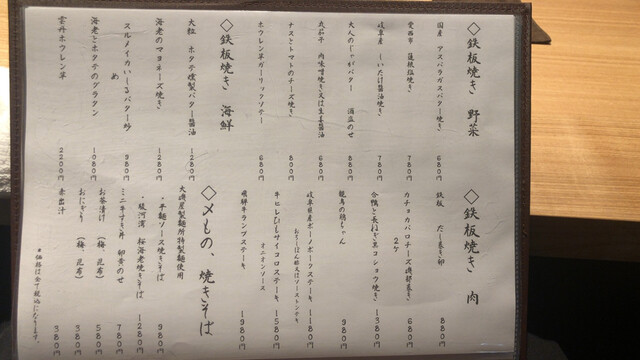 ◇鉄板焼き 野菜
国産 アスパラガスバター焼き 680円
愛西市 蓮根塩焼き 780円
岐阜産 しいたけ醤油焼き 780円
大人のじゃがバター 酒盗のせ 880円
肉味噌焼き又は生姜醤油 680円
ナスとトマトのチーズ焼き 800円
ホウレン草ガーリックソテー 680円
◇鉄板焼き 海鮮
大粒 ホタテ燻製バター醤油 1280円
海老のマヨネーズ焼き 1280円
スルメイカいしるバター炒め 980円
海老とホタテのグラタン 1080円
雲丹ホウレン草 2200円
◇鉄板焼き 肉
鉄板 だし巻き卵 880円
カチョカバロチーズ磯部巻き 2ケ 680円
合鴨と長ねぎ黒コショウ焼き 1380円
郡上の鶏ちゃん 980円
岐阜県産ボーノポークステーキ 1180円
おろしぽん酢又はソーストンテキ
牛ヒレひもサイコロステーキ 1580円
オニオンソース
飛騨牛ランプステーキ 1980円
◇〆もの、焼きそば
大磯屋製麺所特製麺使用
・平麺ソース焼きそば 980円
・駿河湾 桜海老焼きそば 1280円
ミニ牛すき丼 卵黄のせ 780円
お茶漬け (梅、昆布) 580円
おにぎり (梅、昆布) 380円
赤出汁 380円
*価格は全て税込になります。